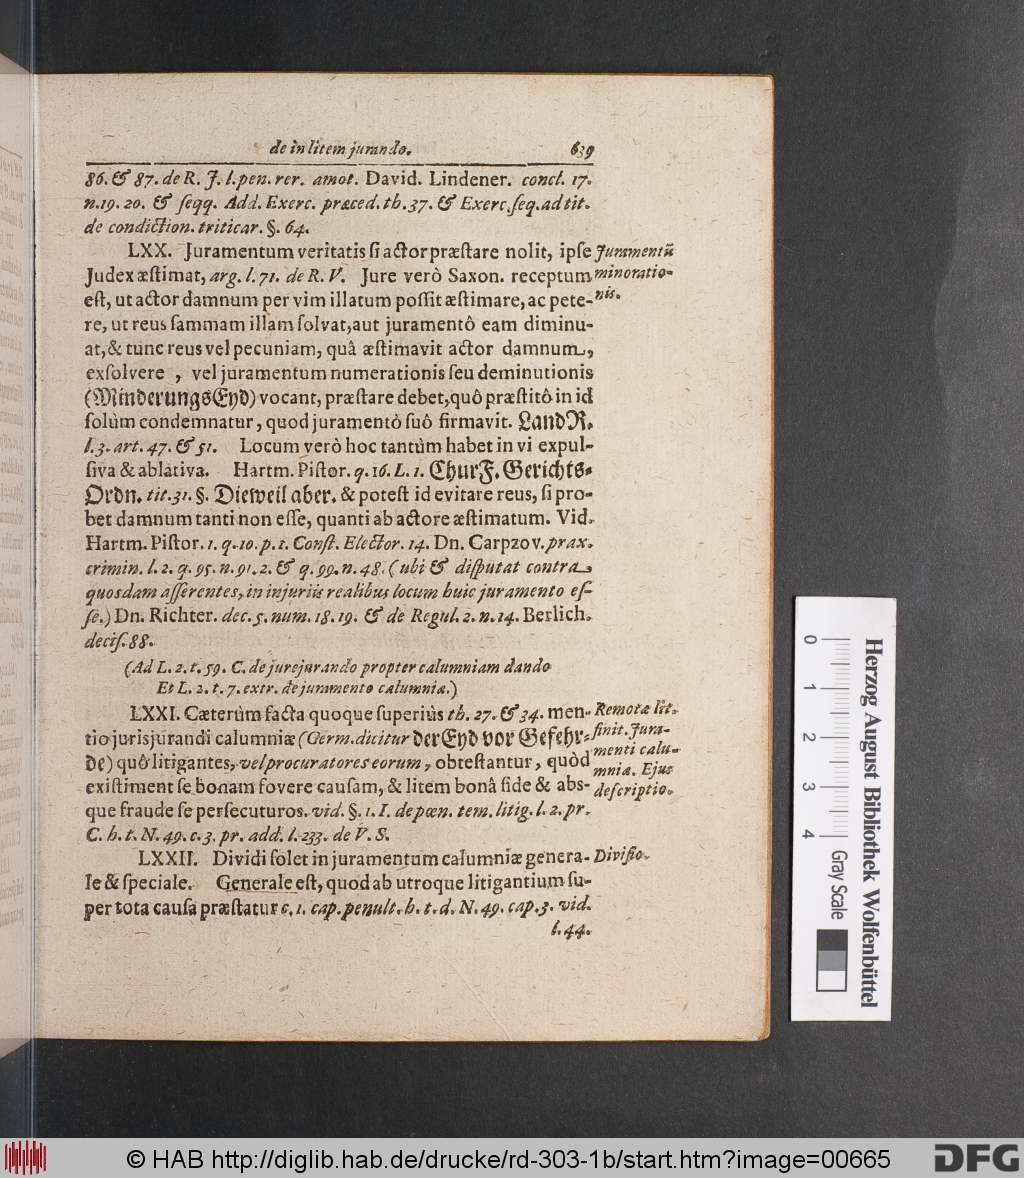 de in litem jurando. 639
86. & 87. de R. J. l. pen. rer. amot. David. Lindener. concl. 17.
n. 19. 20. & seqq. Add. Exerc. præced. th. 37. & Exerc. seq. ad tit.
de condiction. triticar. §. 64.
LXX. Juramentum veritatis si actor præstare nolit, ipse
Judex æstimat, arg. l. 71. de R. V. Jure verò Saxon. receptum
est, ut actor damnum per vim illatum possit æstimare, ac pete-
re, ut reus sammam illam solvat, aut juramentô eam diminu-
at, & tunc reus vel pecuniam, quâ æstimavit actor damnum,
exsolvere , vel juramentum numerationis seu deminutionis
(MinderungsEyd) vocant, præstare debet, quô præstitô in id
solùm condemnatur, quod juramentò suô firmavit. LandR.
l. 3. art. 47. & 51. Locum verò hoc tantùm habet in vi expul-
siva & ablativa. Hartm. Pistor. q. 16. L. 1. ChurF. Gerichts-
Ordn. tit. 31. §. Dieweil aber. & potest id evitare reus, si pro-
bet damnum tanti non esse, quanti ab actore æstimatum. Vid.
Hartm. Pistor. 1. q. 10. p. 1. Const. Elector. 14. Dn. Carpzov. prax.
crimin. l. 2. q. 95. n. 91. 2. & q. 99. n. 48. (ubi & disputat contra
quosdam asserentes, in injuriis realibus locum huic juramento es-
se.) Dn. Richter. dec. 5. num. 18. 19. & de Regul. 2. n. 14. Berlich.
decis. 88.
Juramentũ
minoratio-
nis.
(Ad L. 2. t. 59. C. de jurejurando propter calumniam dando
Et L. 2. t. 7. extr. de juramento calumniæ.)
LXXI. Cæterùm facta quoque superiùs th. 27. & 34. men-
tio jurisjurandi calumniæ (Germ. dicitur der Eyd vor Gefehr-
de) quô litigantes, vel procuratores eorum, obtestantur, quòd
existiment se bonam fovere causam, & litem bonâ fide & abs-
que fraude se persecuturos. vid. §. 1. I. de pœn. tem. litig. l. 2. pr.
C. h. t. N. 49. c. 3. pr. add. l. 233. de V. S.
Remotæ lit.
finit. Jura-
menti calu-
mniæ. Ejus
descriptio.
LXXII. Dividi solet in juramentum calumniæ genera-
le & speciale. Generale est, quod ab utroque litigantium su-
per tota causa præstatur c. 1. cap. penult. h. t. d. N. 49. cap. 3. vid.
l. 44.
Divisio.
0
1
2
3
4
Gray Scale
Herzog August Bibliothek Wolfenbüttel
© HAB http://diglib.hab.de/drucke/rd-303-1b/start.htm?image=00665
DFG